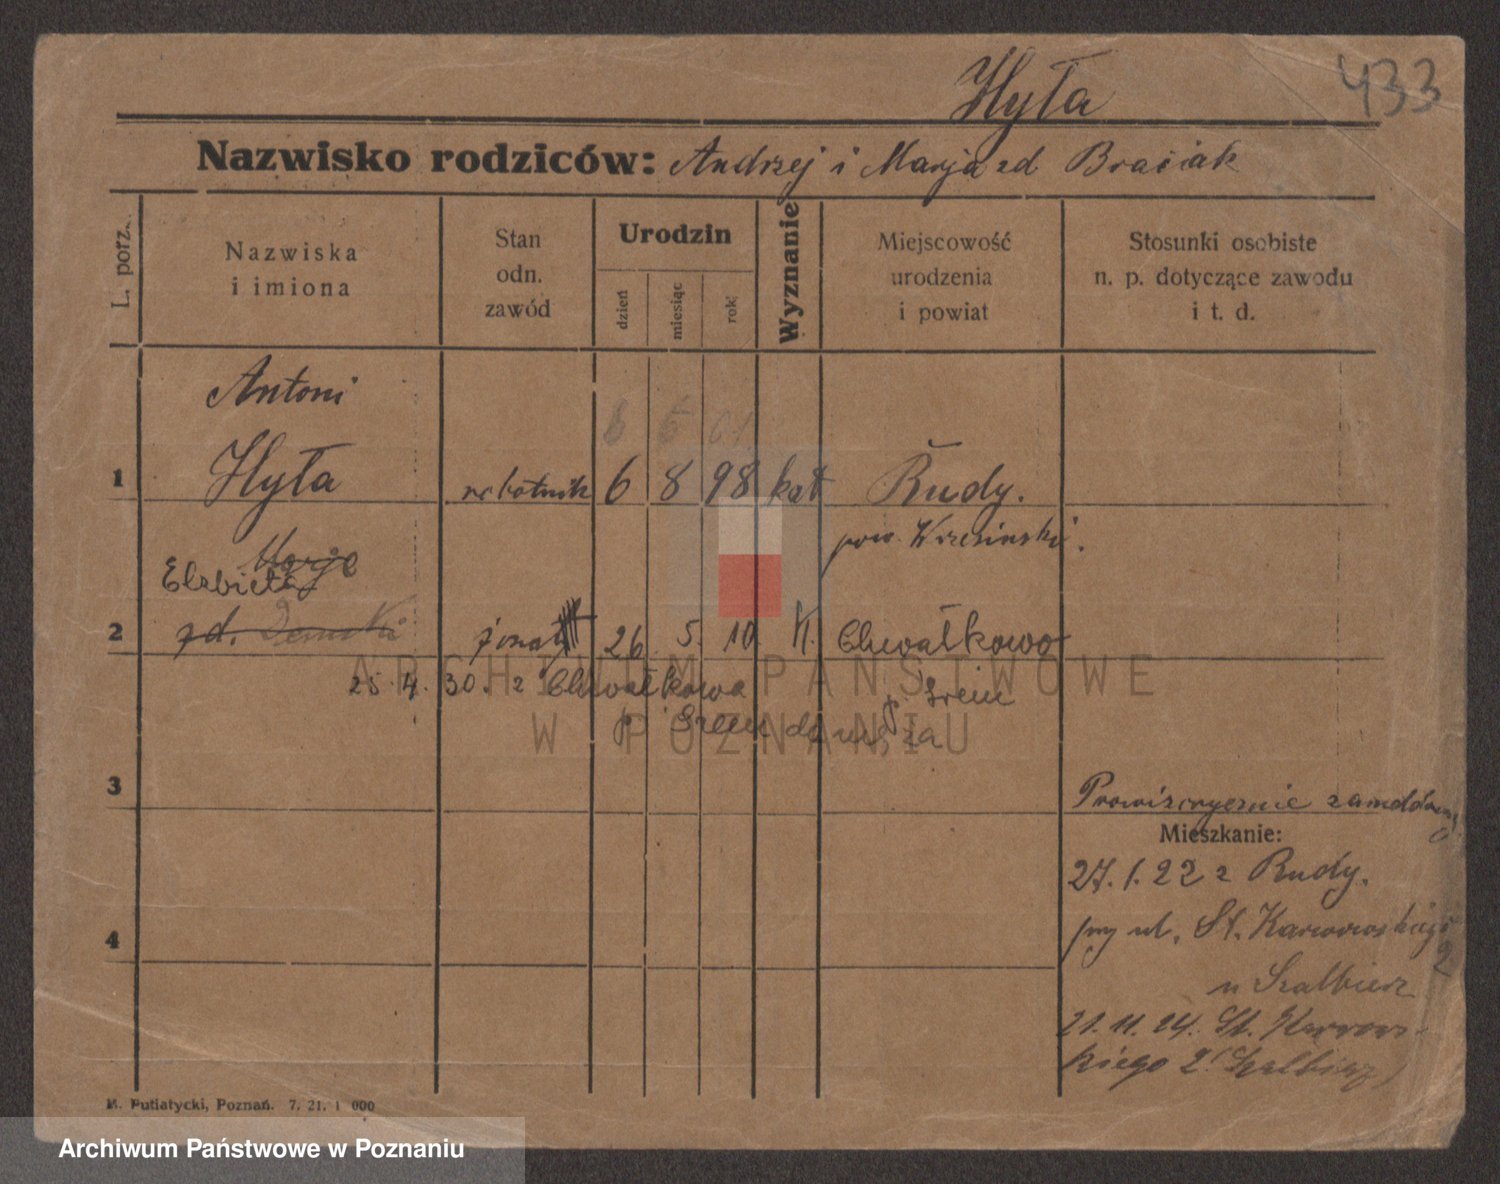 433
Hyła
Nazwisko rodziców: Andrzej i Marja zd Braciak
L. porz.
Nazwiska
i imiona
Stan
odn.
zawód
Urodzin
dzień
miesiąc
rok
Wyznanie
Miejscowość
urodzenia
i powiat
Stosunki osobiste
n. p. dotyczące zawodu
i t. d.
Antoni
6 6 01
1 Hyła robotnik 6 8 98 kat Rudy.
pow. Wrzesiński.
Marja
Elzbieta
2 zd. żonaty 26 5. 10 K. Chwałkowo
25. 4. 30. z Chwałkowa p. Srem
p. Srem
3
Prowizorycznie
Mieszkanie:
27. 1. 22 z Rudy.
4
przy ul. St. Karwowskiego
2
u Szalbierz
21. 11. 24. St. Karwows-
kiego 2 (Szalbierz)
M. Putiatycki, Poznań. 7. 21. 1 000
ARCHIWUM PAŃSTWOWE
W POZNANIU
Archiwum Państwowe w Poznaniu